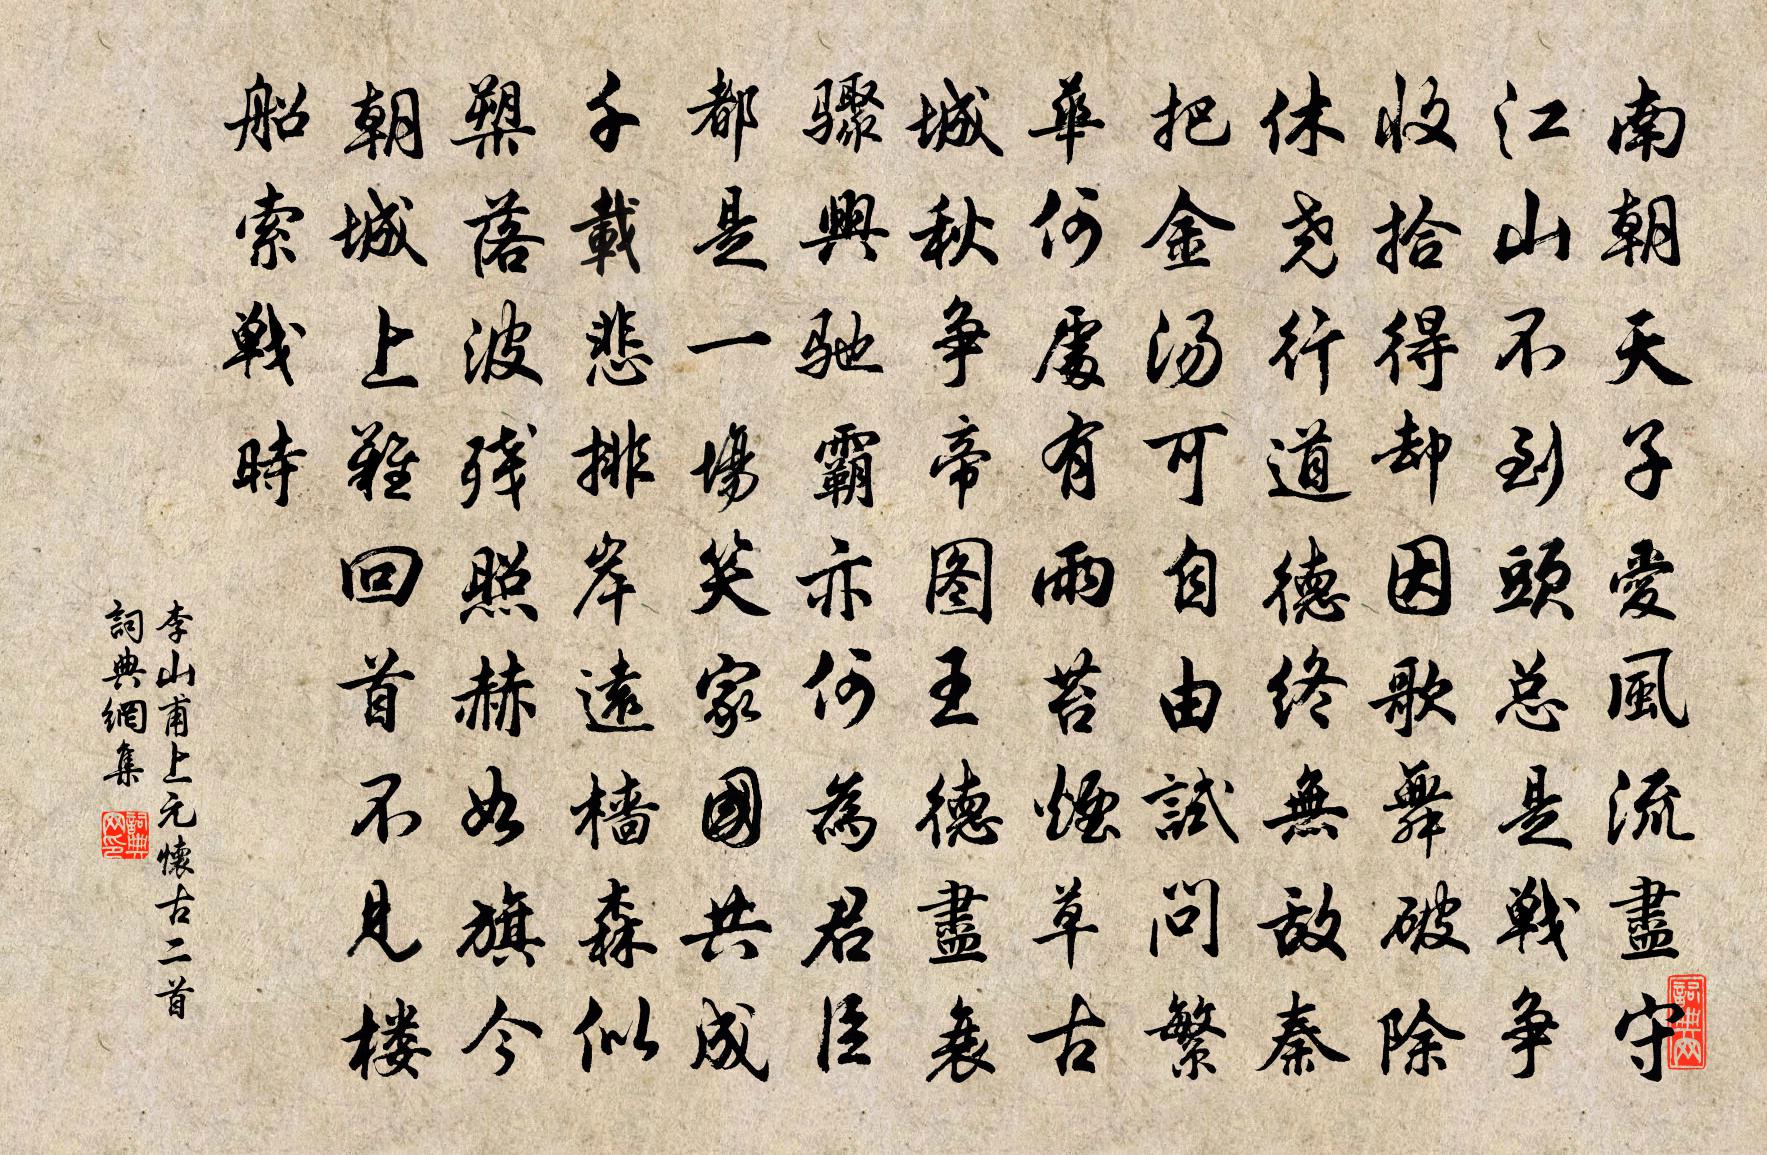 南朝天子愛風流盡守
江山不到頭总是戦争
收拾得却因歌舞破除
休尧行道德终無敌秦
把金汤可自由試問繁
華何處有雨苔煙草古
城秋争帝图王德盡衰
驟興馳霸亦何為君臣
都是一場笑家國共成
千載悲排岸遠樯森似
槊落波残照赫如旗今
朝城上難回首不見楼
船索戦時
李山甫上元懷古二首
詞典網集
詞典网印
詞典网